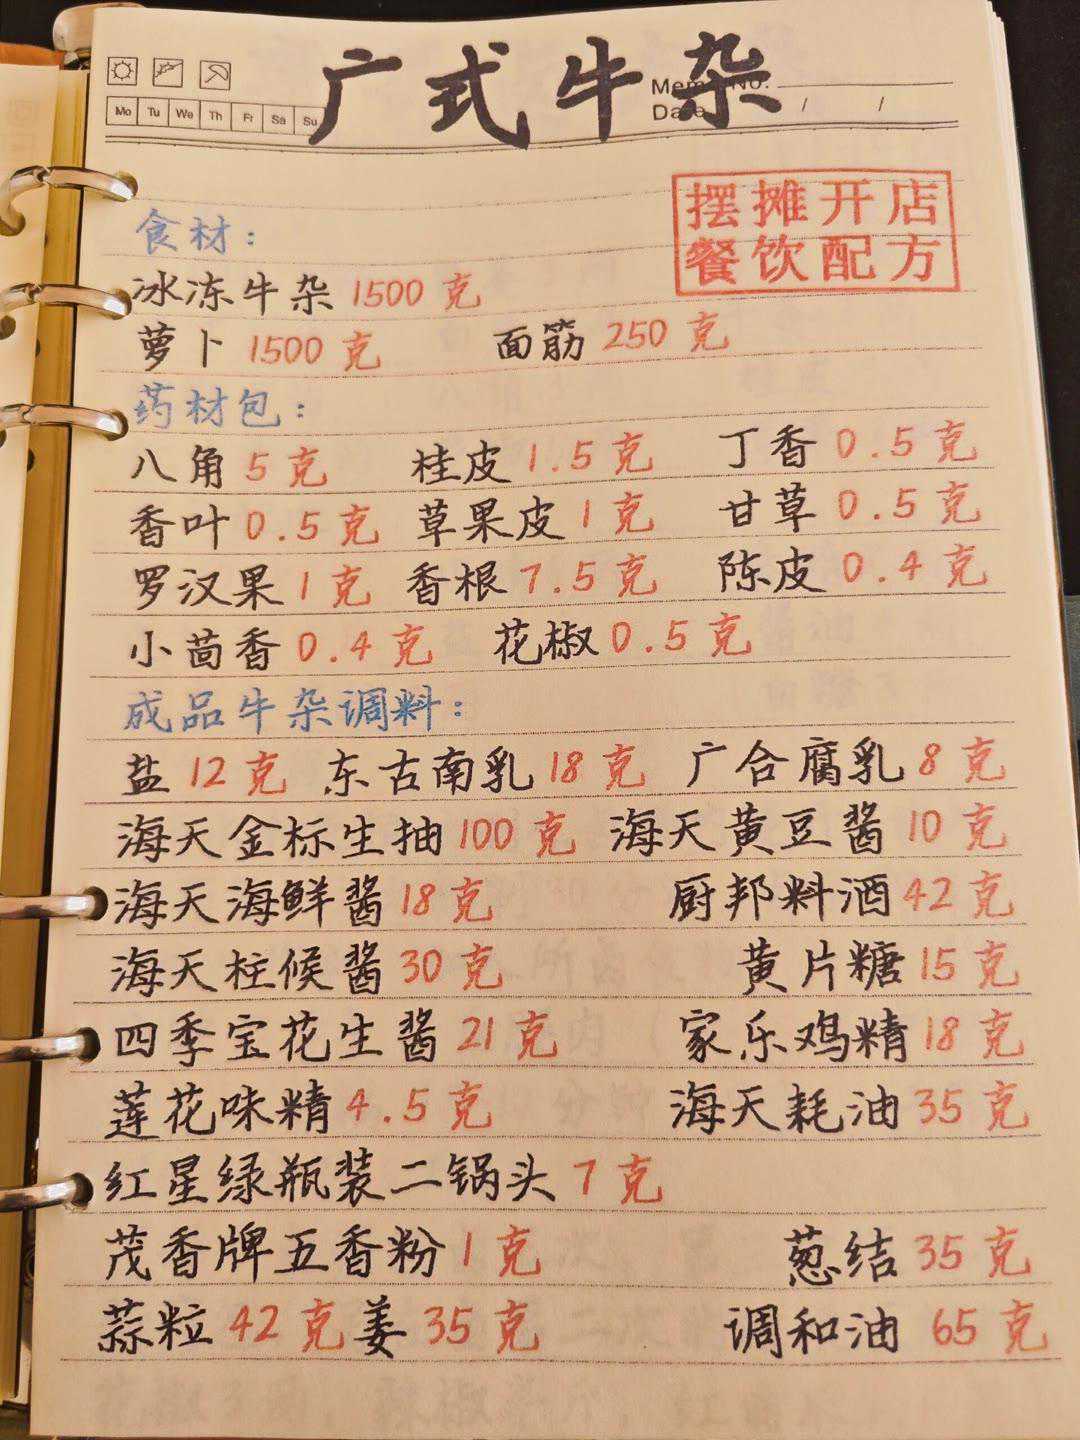 广式牛杂
Memo No.
Mo Tu We Th Fr Sa Su
Date / /
摆摊开店
餐饮配方
食材：
冰冻牛杂 1500 克
萝卜 1500 克 面筋 250 克
药材包：
八角 5 克 桂皮 1.5 克 丁香 0.5 克
香叶 0.5 克 草果皮 1 克 甘草 0.5 克
罗汉果 1 克 香根 7.5 克 陈皮 0.4 克
小茴香 0.4 克 花椒 0.5 克
成品牛杂调料：
盐 12 克 东古南乳 18 克 广合腐乳 8 克
海天金标生抽 100 克 海天黄豆酱 10 克
海天海鲜酱 18 克 厨邦料酒 42 克
海天柱候酱 30 克 黄片糖 15 克
四季宝花生酱 21 克 家乐鸡精 18 克
莲花味精 4.5 克 海天耗油 35 克
红星绿瓶装二锅头 7 克
茂香牌五香粉 1 克 葱结 35 克
蒜粒 42 克 姜 35 克 调和油 65 克